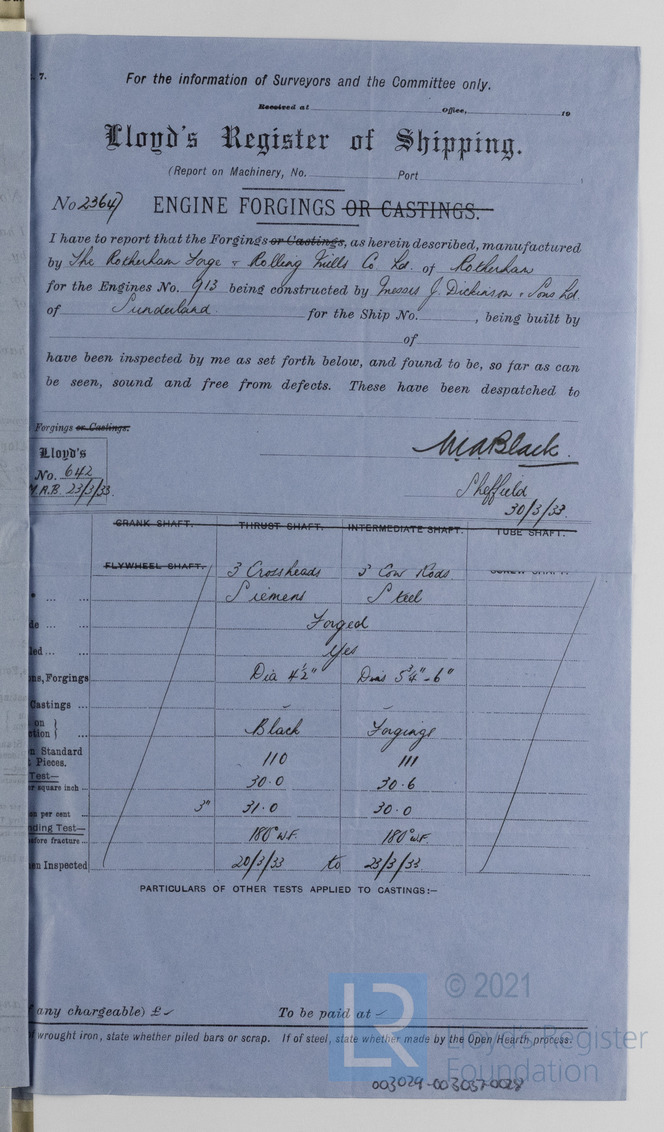 . 7.
For the information of Surveyors and the Committee only.
Received at Office, 19
Lloyd's Register of Shipping.
(Report on Machinery, No. Port
No 2364 ENGINE FORGINGS OR CASTINGS.
I have to report that the Forgings or Castings, as herein described, manufactured
by The Rotherham Forge & Rolling Mills Co Ld. of Rotherham
for the Engines No. 913 being constructed by Messrs J. Dickinson & Sons Ld.
of Sunderland. for the Ship No. , being built by
of
have been inspected by me as set forth below, and found to be, so far as can
be seen, sound and free from defects. These have been despatched to
Forgings or Castings.
WaBlack.
Lloyd's
No. 642
W.A.B. 23/3/33.
Sheffield
30/3/33.
CRANK SHAFT. THRUST SHAFT. INTERMEDIATE SHAFT. TUBE SHAFT.
FLYWHEEL SHAFT. 3 Crossheads 3 Con Rods SCREW SHAFT.
" ... ... Siemens Steel
de ... ... Forged
led ... ... Yes
ns, Forgings Dia 4½" Dias 5¾"-6"
Castings ... - -
on }
tion } ... Black Forgings
n Standard
t Pieces. 110 111
Test—
er square inch ... 30.0 30.6
on per cent ... 3" 31.0 30.0
nding Test—
efore fracture ... 180° W.F. 180° W.F.
en Inspected 20/3/33 to 23/3/33.
PARTICULARS OF OTHER TESTS APPLIED TO CASTINGS:—
any chargeable) £ To be paid at
f wrought iron, state whether piled bars or scrap. If of steel, state whether made by the Open Hearth process.
LR
© 2021
Lloyd's Register
Foundation
003029-003037-0028